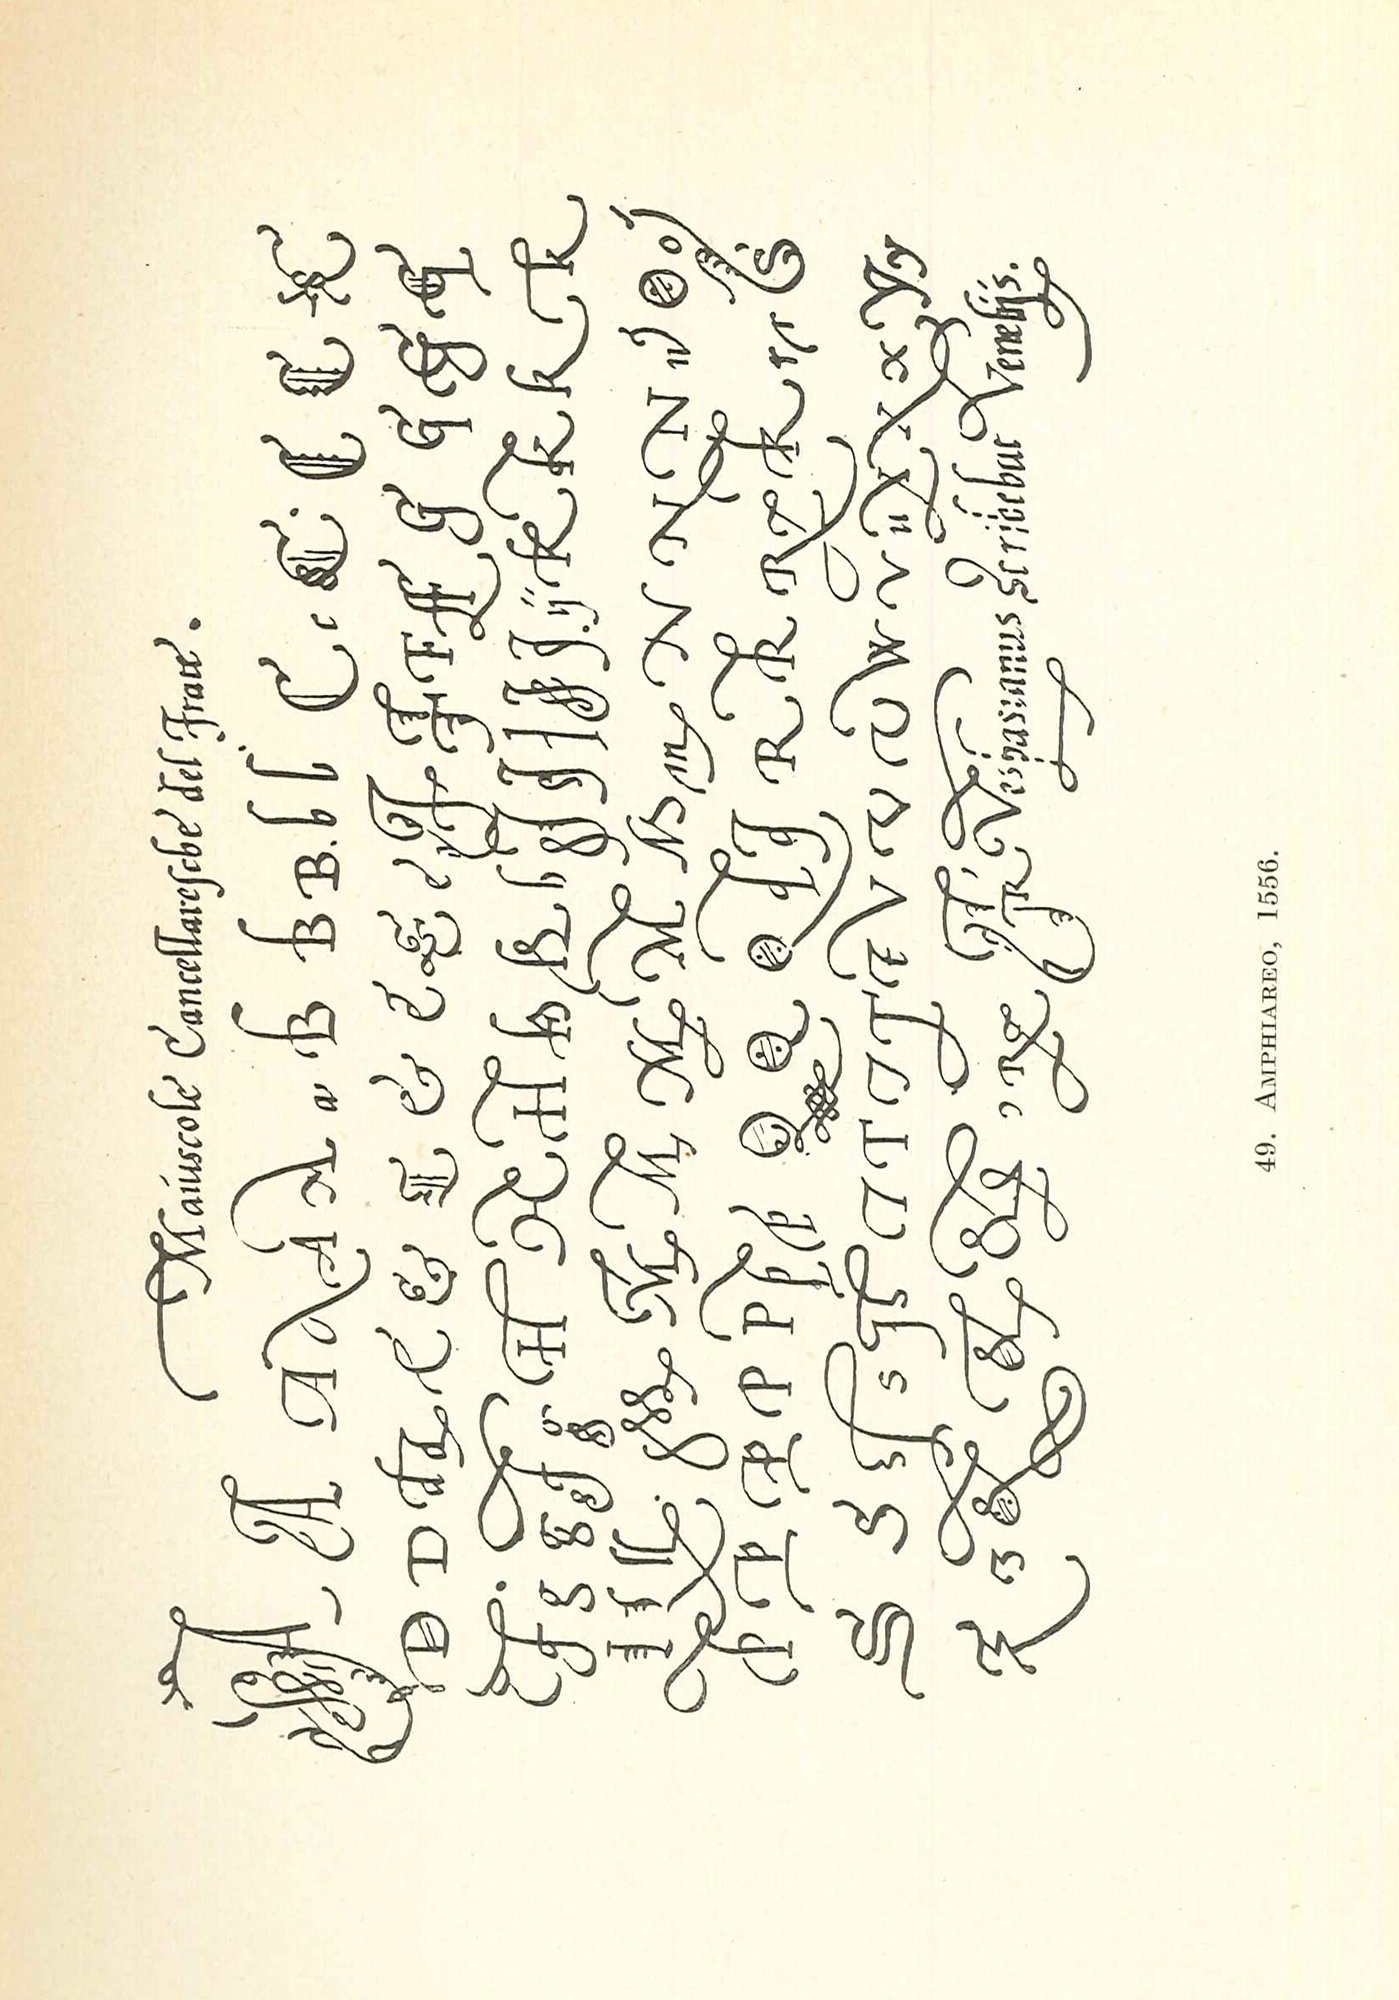 Maiuscole Cancellaresche del Frate.
A A A A A A a B B B B. b l C c C. C C C
D D D E E E E E F F F G G G G
H H H H H I I ij K K K K K
I I L M M M M M N m N N N N n O o
P P P P P P Q Q Q R R R R R S
S S S s S T T T T T V V V V W V u X X x Y y
Z & & Fr. Vespasianus Scribebat Venetijs.
49. AMPHIAREO, 1556.